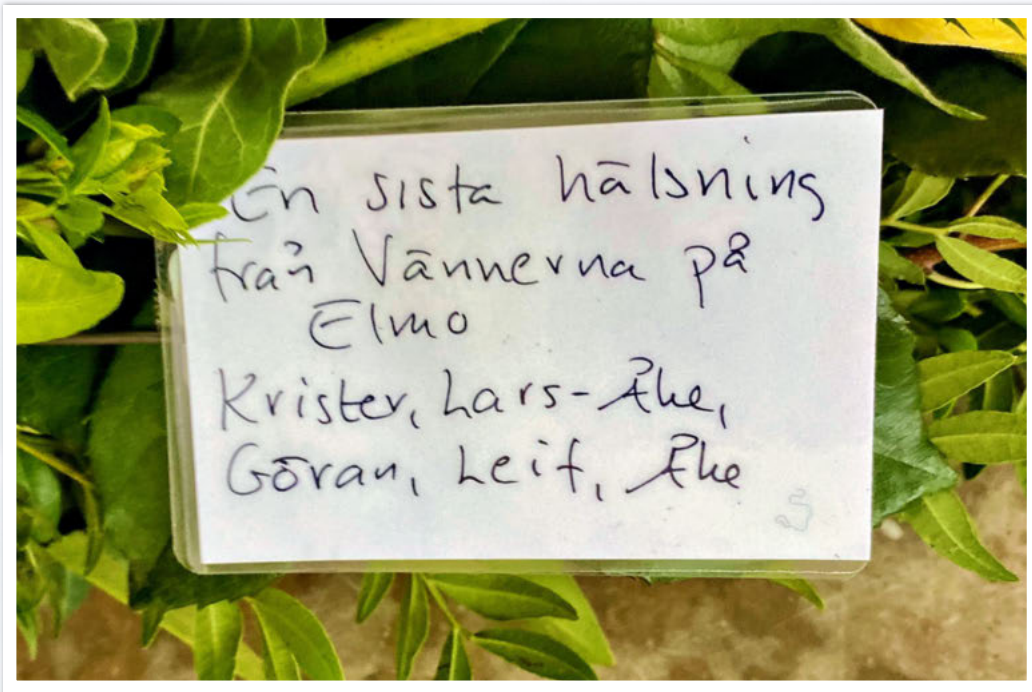 En sista hälsning
från Vännerna på
Elmo
Krister, Lars-Åke,
Göran, Leif, Åke